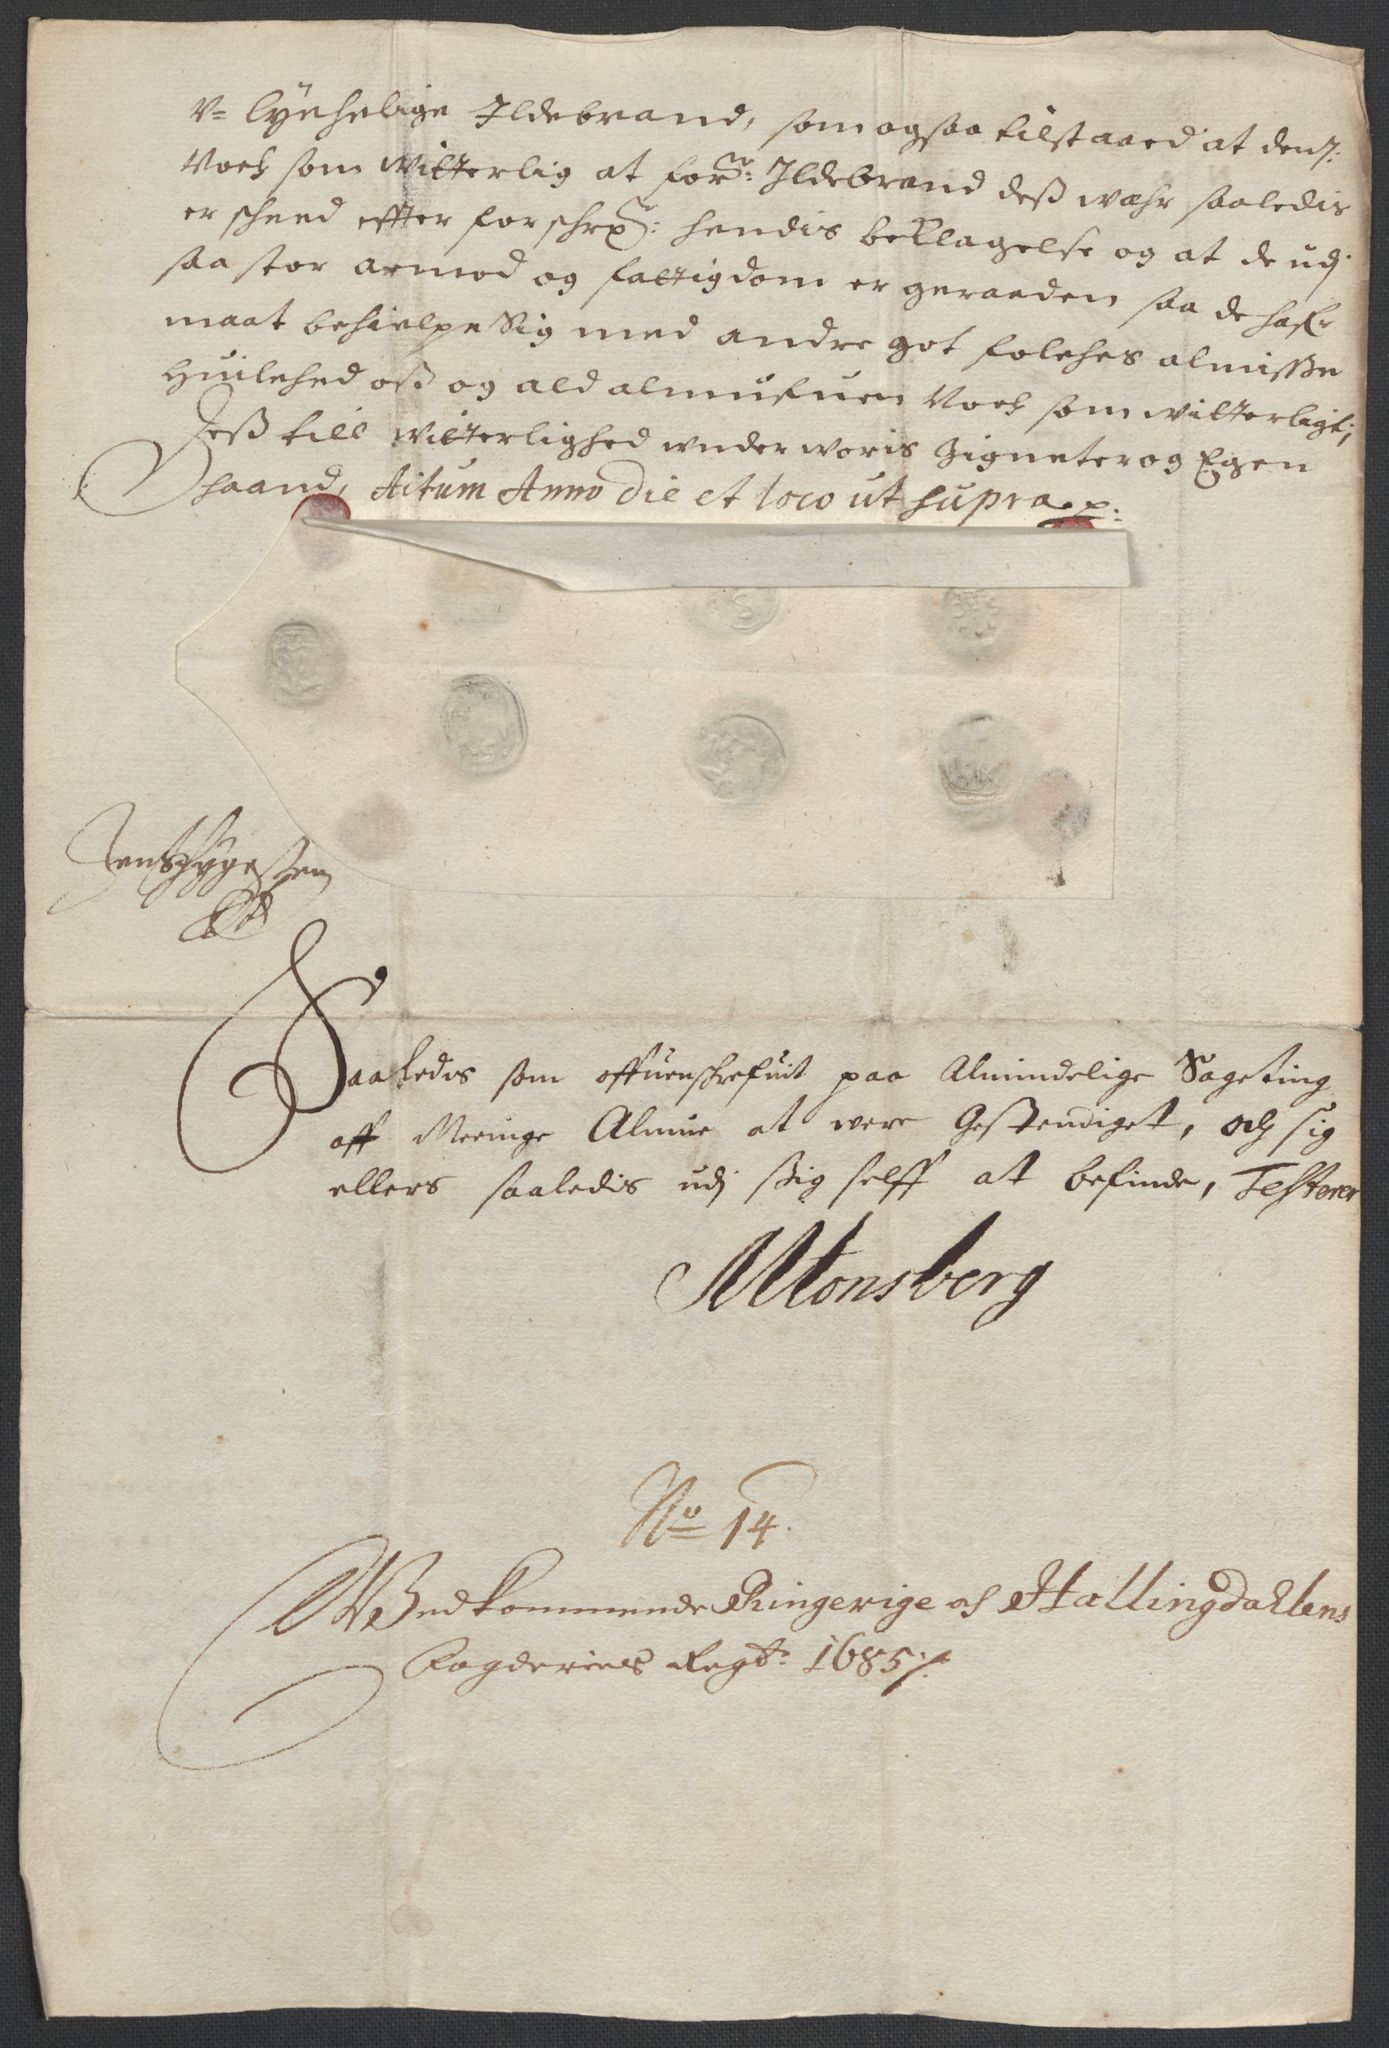 V= lychelige Ildebrand, som ogsaa tilstaaed at den7:
Voeh som Witterlig at for:ne Ildebrand deß wahr saaledis
er scheed effter forschr: hendis beKlagelse og at de udj
saa stor armod og fattigdom er geraaden saa de hafr
maat behielpe Sig med andre got folches almisse
Huilched oß og ald almufuen Voeh som witterligt;
Deß till Witterlighed under woris Zigneter og Egen
haand, Actum Anno die et loco ut supra.p:
Jens
Saaledis som offuenschrefuit paa Almindelige Sageting
aff Meenige Almue at were Gestendiget, och sig
ellers saaledis udj ssig selff at befinde, Testerer
Mtonsberg
No 14.
Wedkommende Ringerige oc Hallingdahlens
Fogderies Regb: 1685